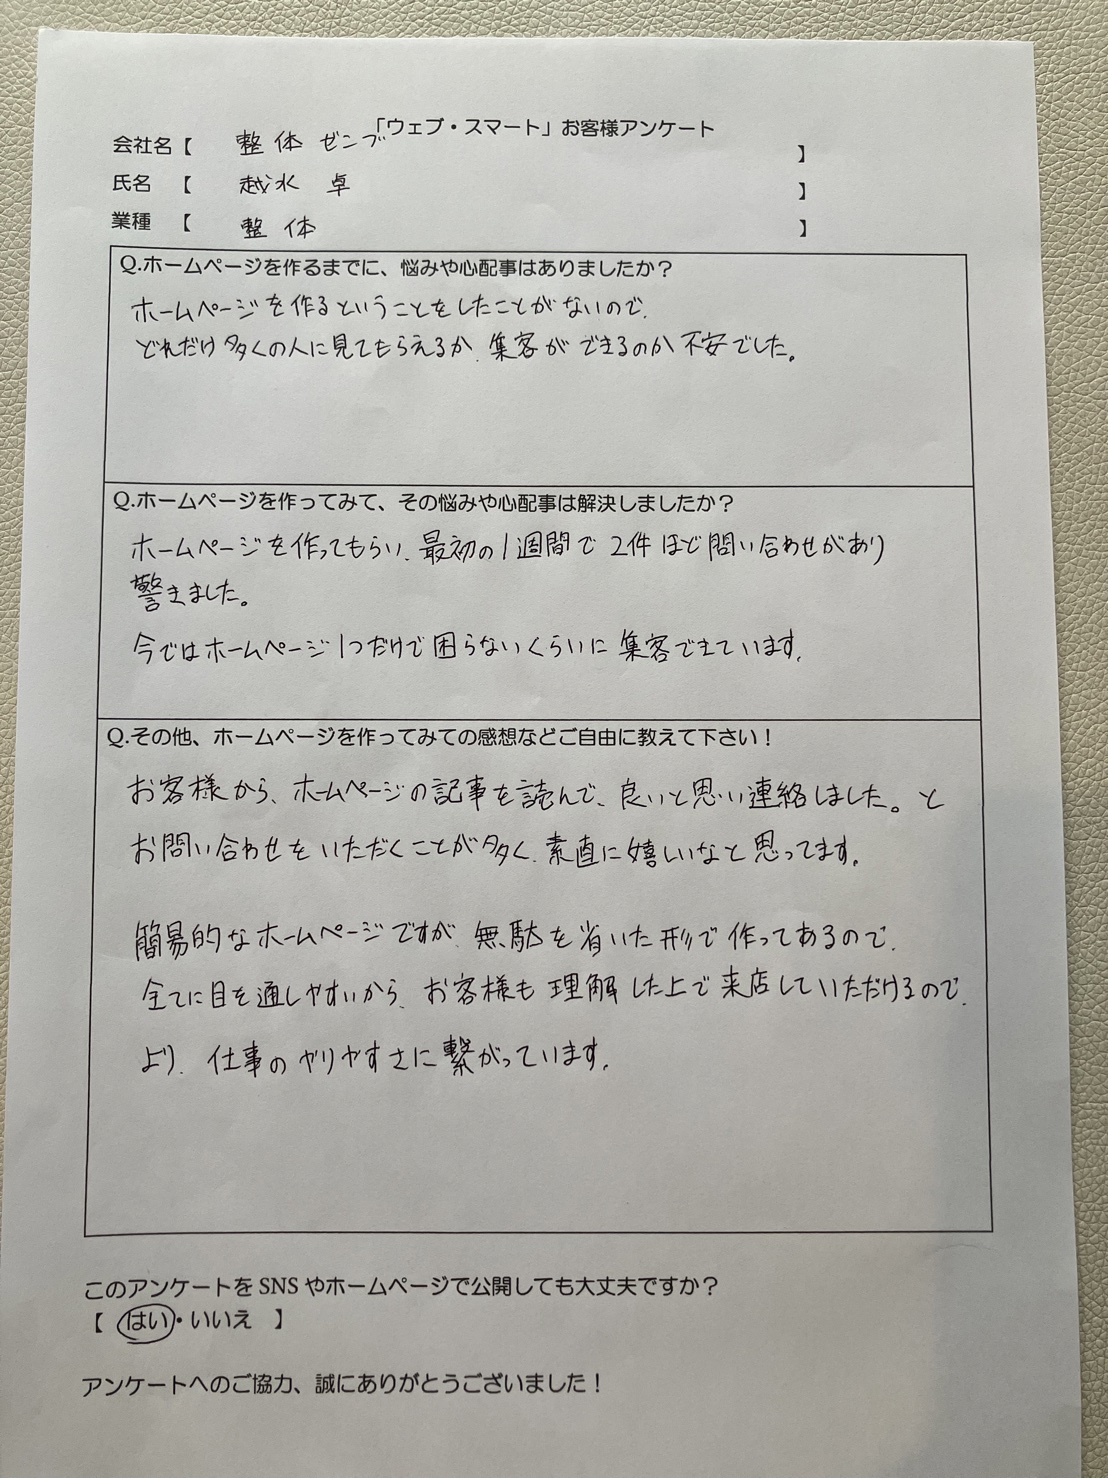 「ウェブ・スマート」お客様アンケート
会社名【 整体 ゼンブ 】
氏名 【 越水 卓 】
業種 【 整体 】
Q.ホームページを作るまでに、悩みや心配事はありましたか？
ホームページを作るということをしたことがないので、
どれだけ多くの人に見てもらえるか、集客ができるのか不安でした。
Q.ホームページを作ってみて、その悩みや心配事は解決しましたか？
ホームページを作ってもらい、最初の1週間で2件ほど問い合わせがあり
驚きました。
今ではホームページ1つだけで困らないくらいに集客できています。
Q.その他、ホームページを作ってみての感想などご自由に教えて下さい！
お客様から、ホームページの記事を読んで、良いと思い連絡しました。と
お問い合わせをいただくことが多く、素直に嬉しいなと思ってます。
簡易的なホームページですが、無駄を省いた形で作ってあるので、
全てに目を通しやすいから、お客様も理解した上で来店していただけるので、
より、仕事のやりやすさに繋がっています。
このアンケートをSNSやホームページで公開しても大丈夫ですか？
【 はい・いいえ 】
アンケートへのご協力、誠にありがとうございました！